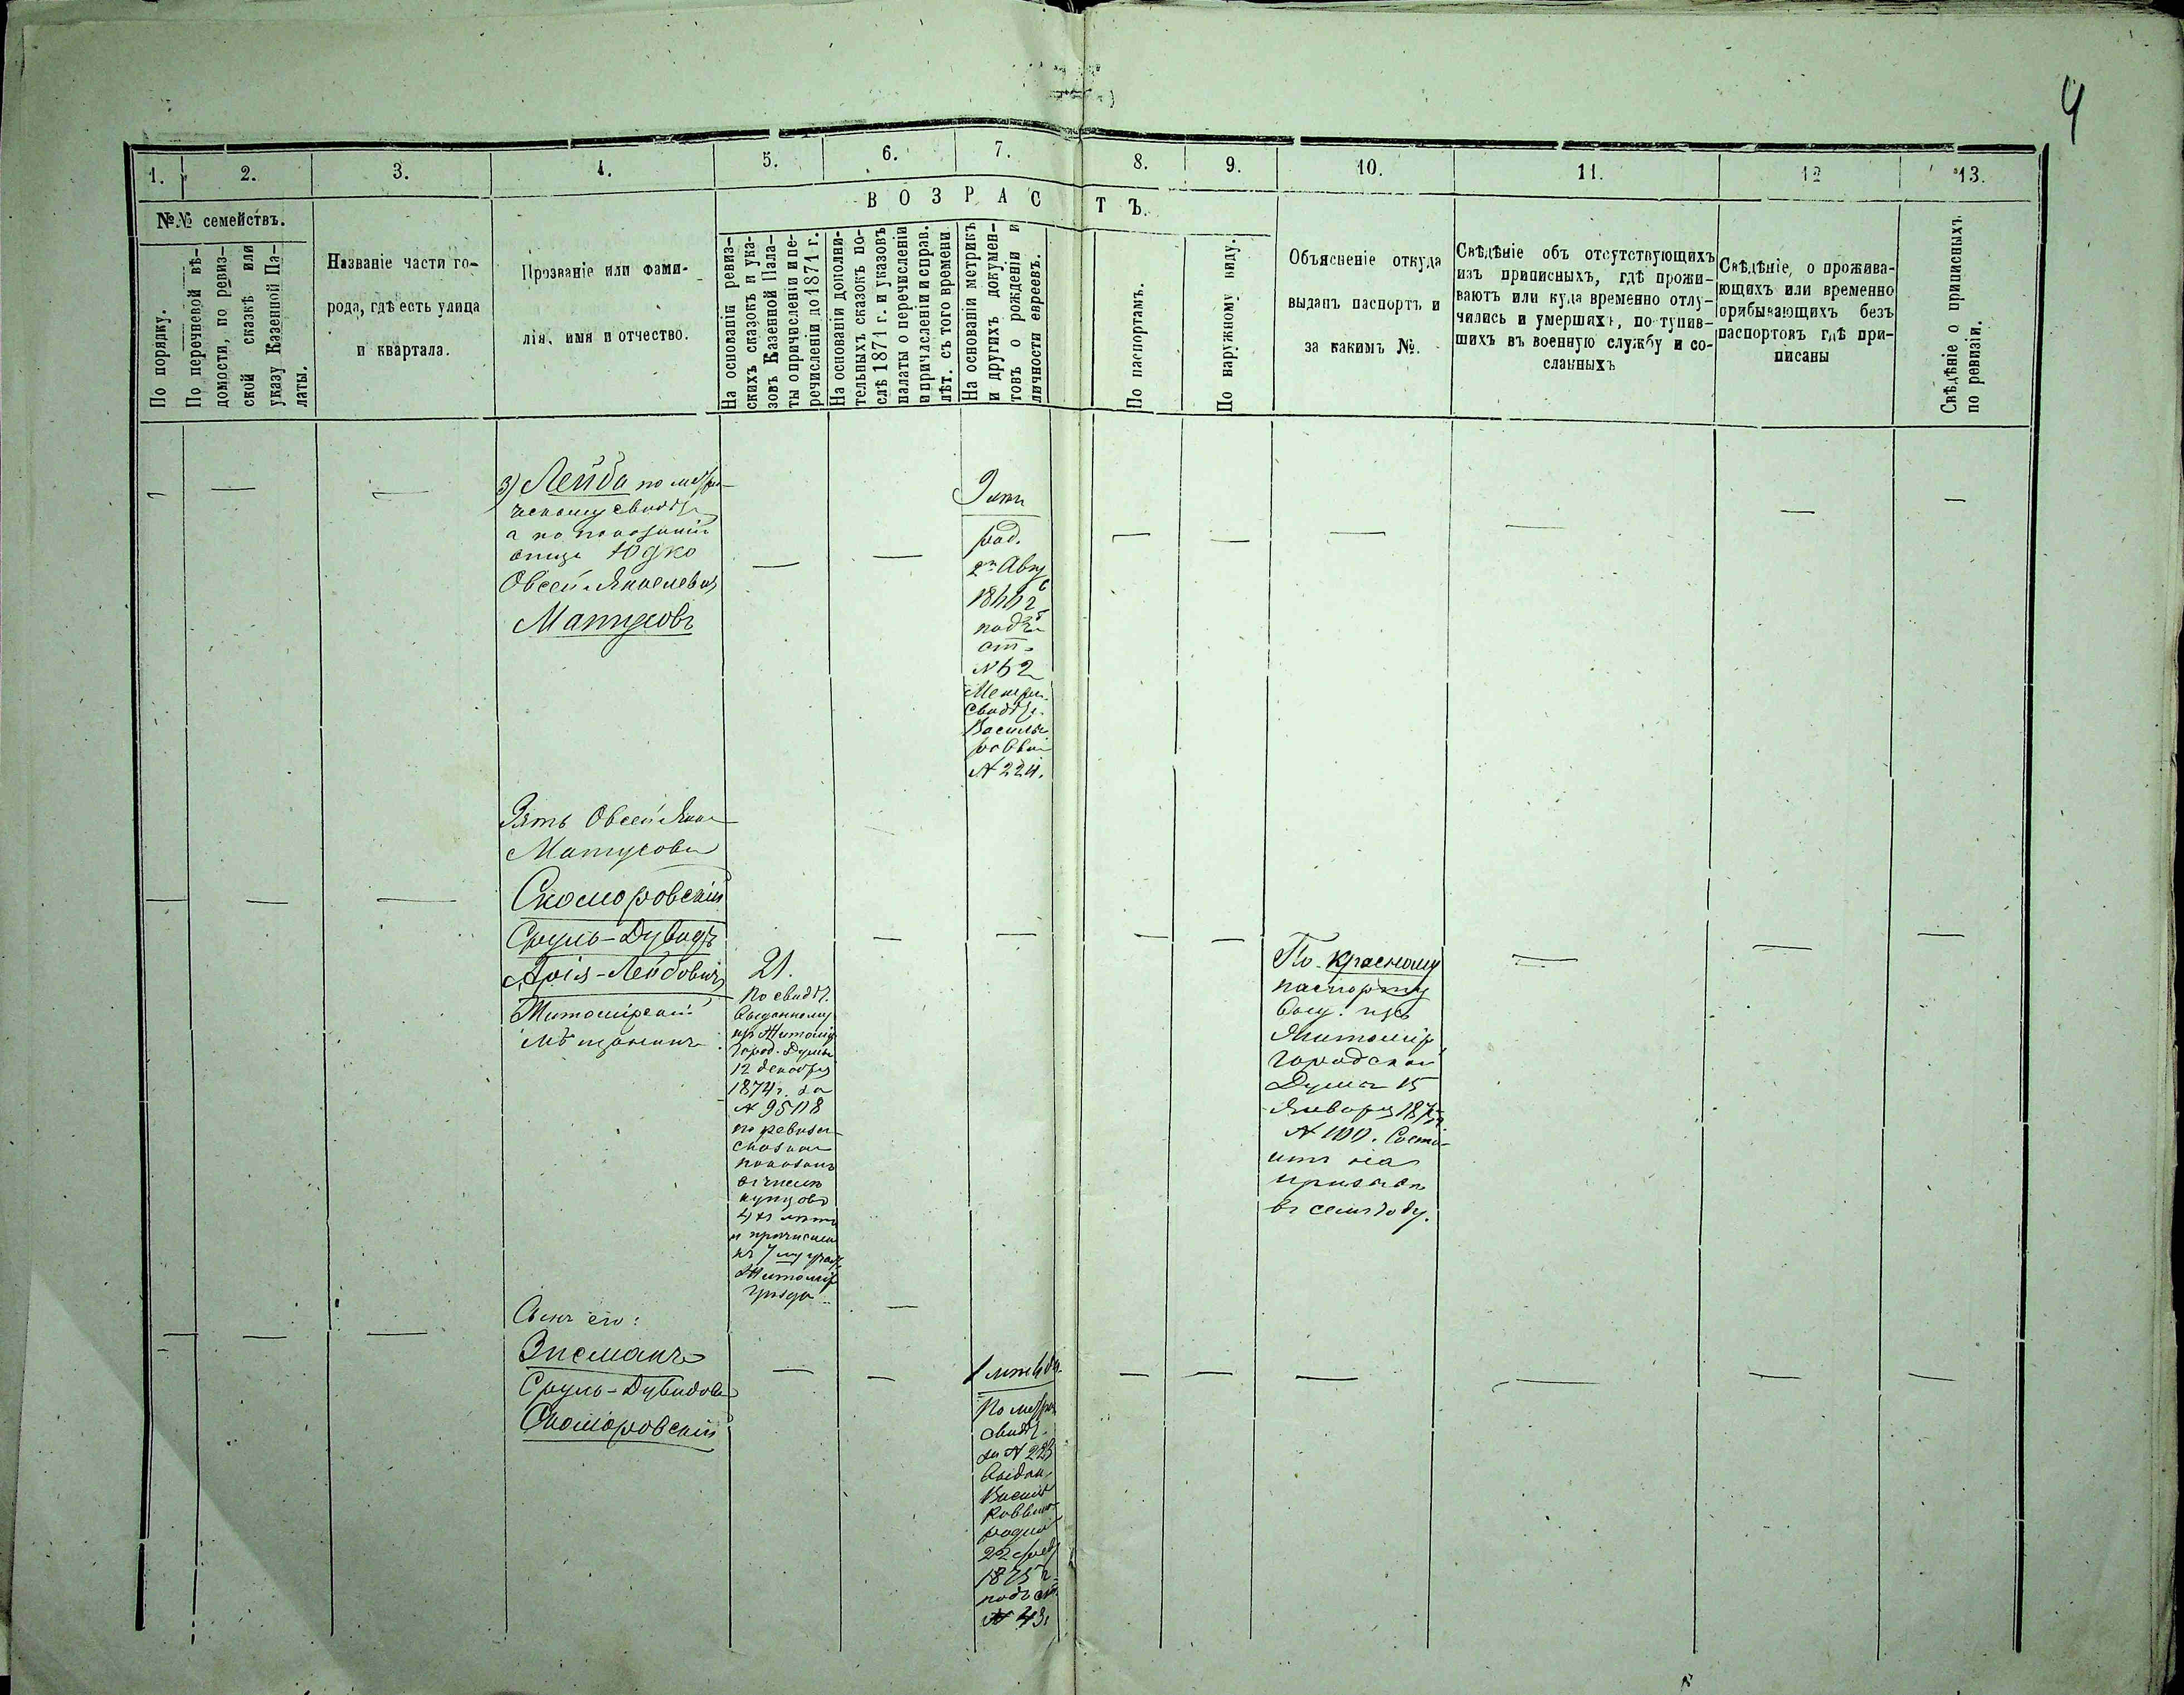 4
1. 2. 3. 4. 5. 6. 7. 8. 9. 10. 11. 12 13.
№№ семействъ.
По порядку.
По перечневой вѣ-
домости, по ревиз-
ской сказкѣ или
указу Казенной Па-
латы.
Названіе части го-
рода, гдѣ есть улица
и квартала.
Прозваніе или фами-
лія, имя и отчество.
ВОЗРАСТЪ.
На основаніи ревиз-
скихъ сказокъ и ука-
зовъ Казенной Пала-
ты о причисленіи и пе-
речисленіи до 1871 г.
На основаніи дополни-
тельныхъ сказокъ по-
слѣ 1871 г. и указовъ
палаты о перечисленіи
и причисленіи и справ.
лѣт. съ того времени.
На основаніи метрикъ
и другихъ докумен-
товъ о рожденіи и
личности евреевъ.
По паспортамъ.
По наружному виду.
Объясненіе откуда
выданъ паспортъ и
за какимъ №.
Свѣдѣніе объ отсутствующихъ
изъ приписныхъ, гдѣ прожи-
ваютъ или куда временно отлу-
чились и умершихъ, поступив-
шихъ въ военную службу и со-
сланныхъ
Свѣдѣніе, о прожива-
ющихъ или временно
прибывающихъ безъ
паспортовъ гдѣ при-
писаны
Свѣдѣніе о приписныхъ
по ревизіи.
3) Лейба по метри-
ческому свидѣт
а по показанію
отца Юдко
Овсей-Янкелевич
Матусовъ
9 лѣтъ
род.
2го Авгу
1866 г
подъ
ст.
№ 62
Метри.
свидѣт.
Василь.
раввин
№ 224.
Зять Овсей Янке
Матусова
Скоморовскій
Сруль-Дувидъ
Арія-Лейбовичъ
Житомірскій
мѣщанинъ
21.
По свидѣт.
выданному
изъ Житомір
Город. Думы
12 декабря
1874 г. за
№ 9518
по ревизи
сказкѣ
показанъ
въ числѣ
купцовъ
лѣтъ
и причислен
къ 7му участ
Житомір
уѣзда
По красному
паспорту
выд. изъ
Житомір
городской
Думы 15
Января 187
№ 100. Состо-
итъ на
призывѣ
въ семъ году.
Сынъ его:
Зисманъ
Сруль-Дувидов
Скоморовскій
По метри
свидѣт.
за № 223
выдан
Васил
Раввин
родил
22 февр
1875 г
подъ ст.
№ 43.